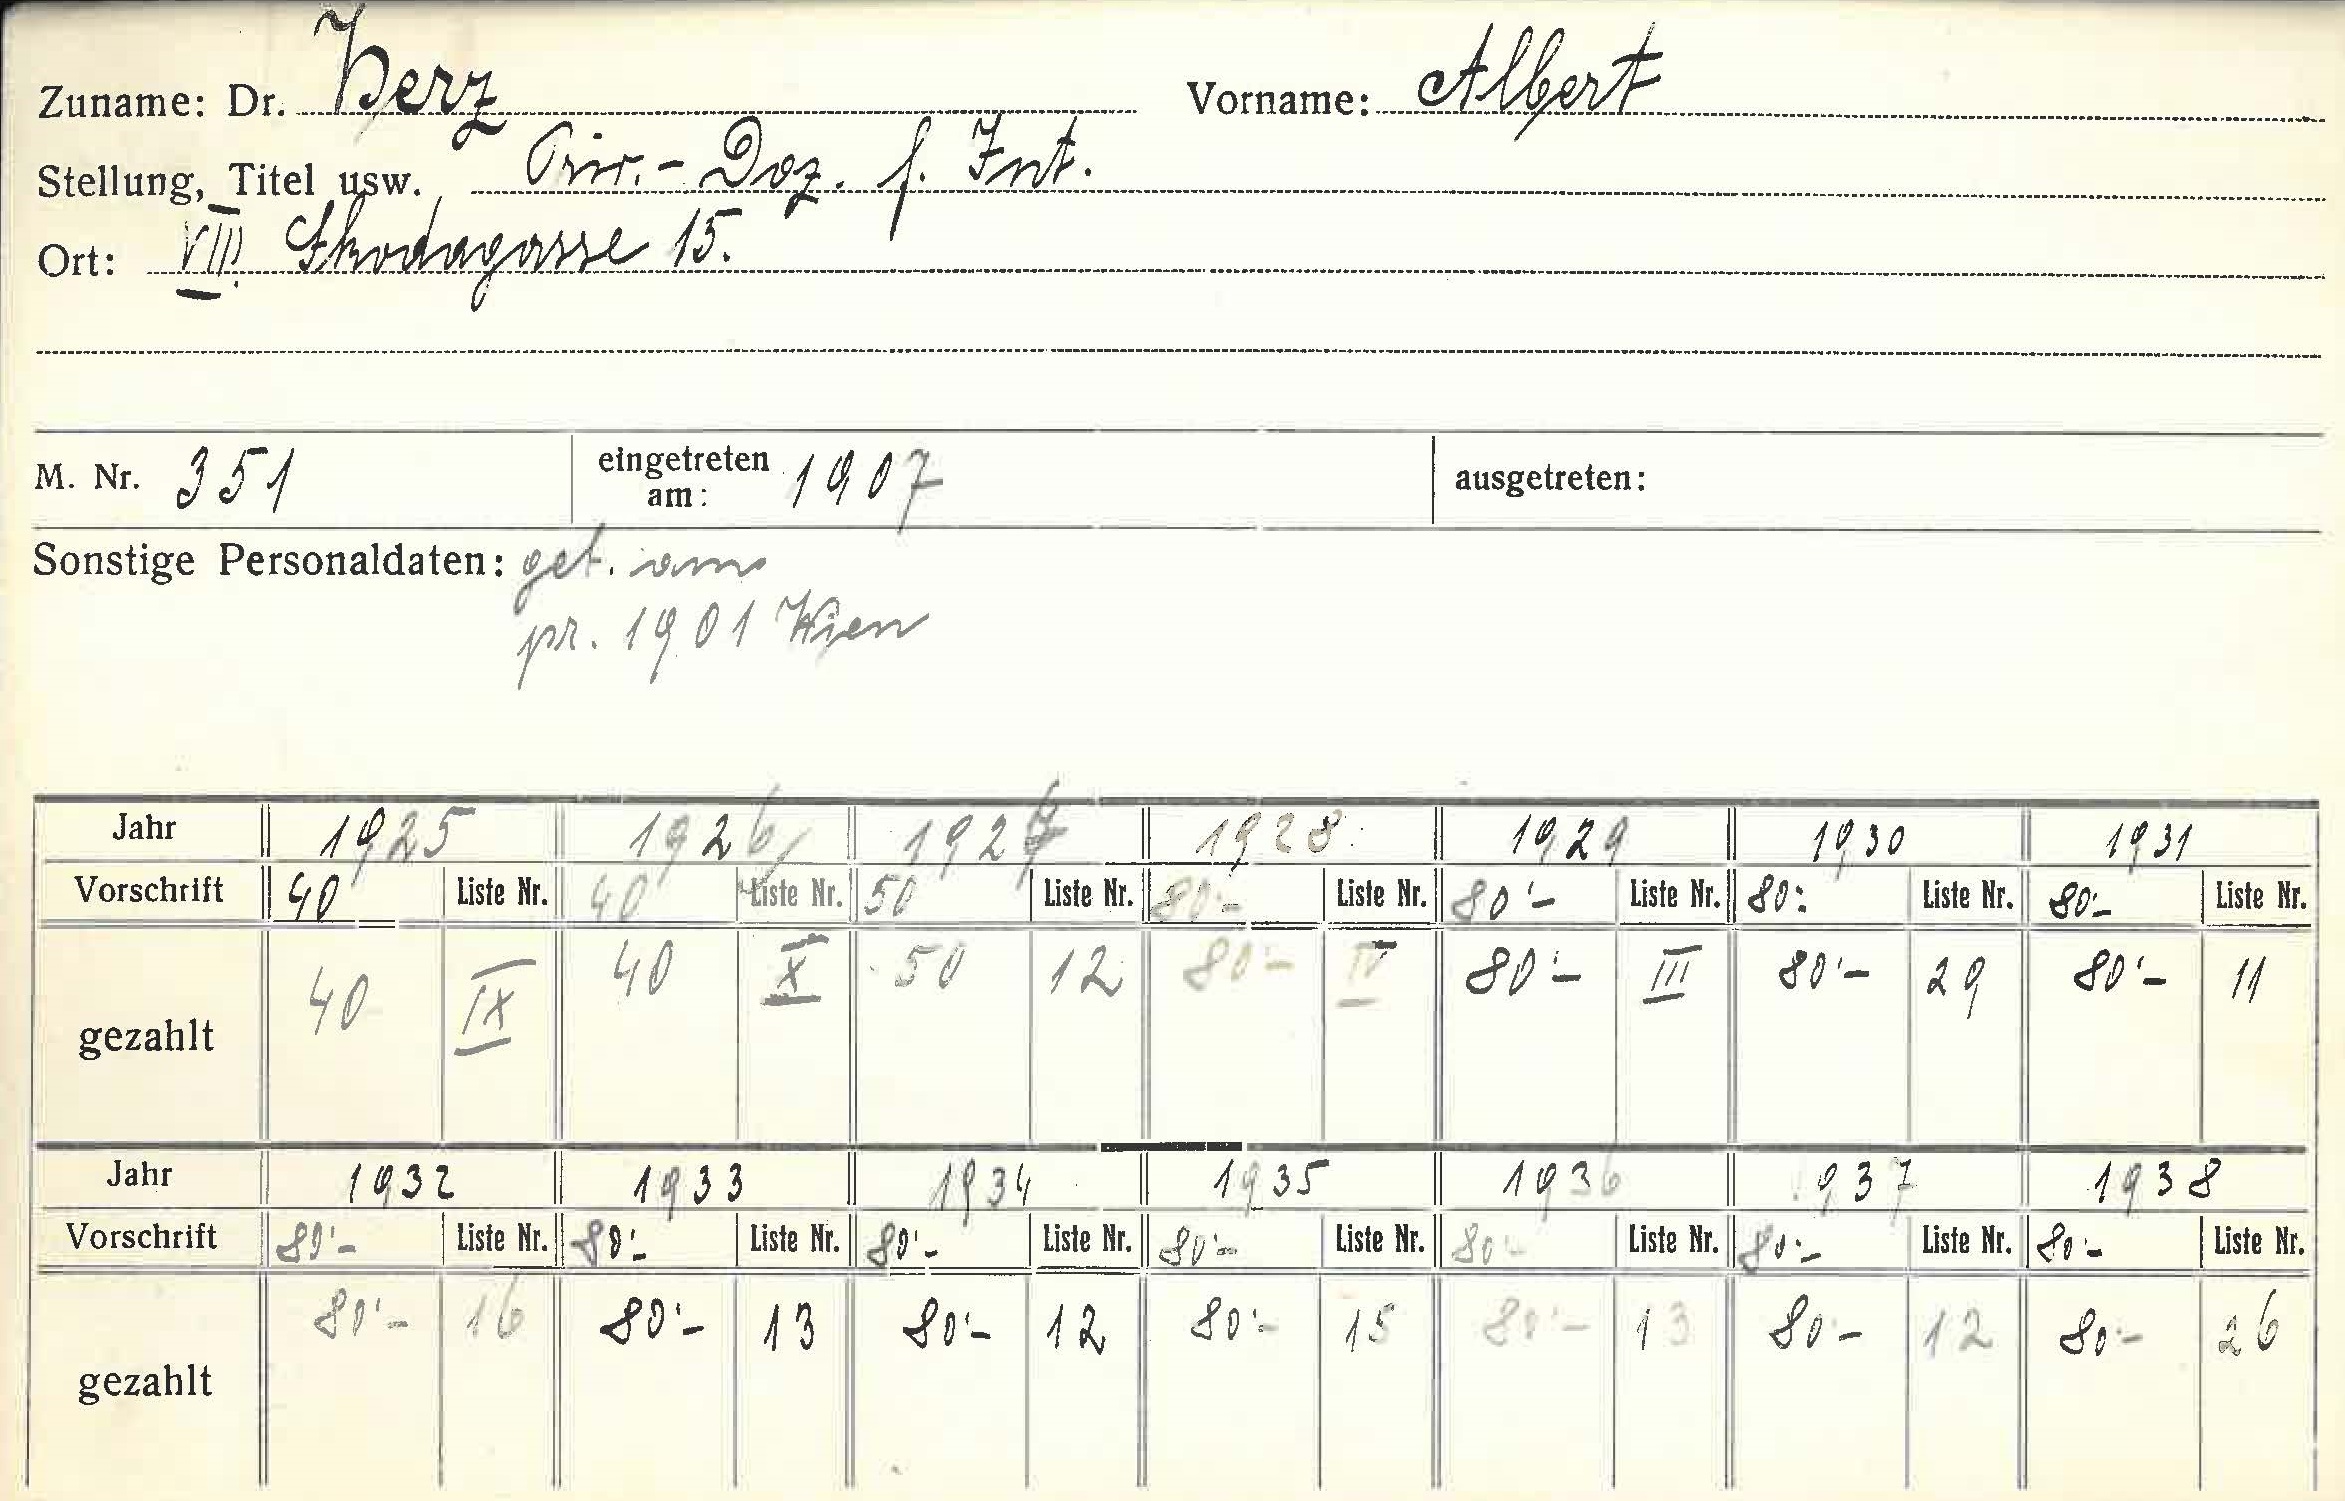 Zuname: Dr. Herz Vorname: Albert
Stellung, Titel usw. Priv.-Doz. f. Int.
Ort: VIII. Skodagasse 15.
M. Nr. 351 eingetreten am: 1907 ausgetreten:
Sonstige Personaldaten: geb. am
pr. 1901 Wien
Jahr 1925 1926 1927 1928 1929 1930 1931
Vorschrift 40 Liste Nr. 40 Liste Nr. 50 Liste Nr. 80'- Liste Nr. 80'- Liste Nr. 80'- Liste Nr. 80'- Liste Nr.
gezahlt 40 IX 40 X 50 12 80'- IV 80'- III 80'- 29 80'- 11
Jahr 1932 1933 1934 1935 1936 1937 1938
Vorschrift 80'- Liste Nr. 80'- Liste Nr. 80'- Liste Nr. 80'- Liste Nr. 80'- Liste Nr. 80'- Liste Nr. 80'- Liste Nr.
gezahlt 80'- 16 80'- 13 80'- 12 80'- 15 80'- 13 80- 12 80'- 26